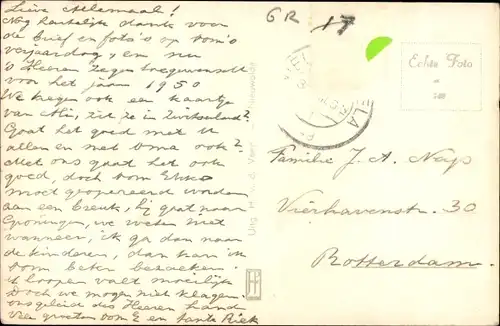 Lieve Allemaal!
Nog hartelijk dank voor
de brief en foto's op oom's
verjaardag, en nu
's Heeren zegen toegewenscht
voor het jaar 1950
We kregen ook een kaartje
van
Gaat het goed met U
allen en met Oma ook?
Met ons gaat het ook
goed, doch oom
moet geopereerd worden
aan een breuk, hij gaat naar
Groningen, we weten niet
wanneer, ik ga dan naar
de kinderen, dan kan ik
oom beter bezoeken.
't loopen valt moeilijk
Doch we mogen niet klagen
ons geleid des Heeren hand
groeten oom E en tante Riek
GR 17
Echte Foto
Familie J. A.
Vierhavenstr. 30
Rotterdam.